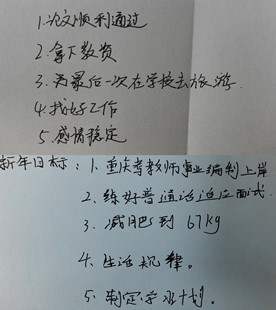 1.论文顺利通过
2.拿下教资
3.为最后一次在学校去旅游.
4.找好工作
5.感情稳定
新年目标: 1. 重庆考教师事业编制上岸
2. 练好普通话适应面试.
3. 减肥到 67kg
4. 生活规律。
5. 制定学习计划。